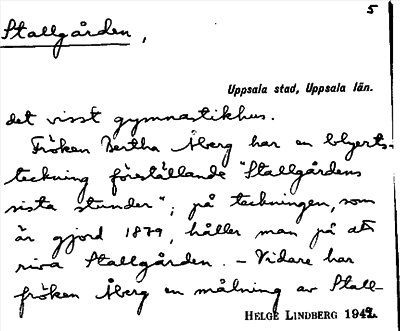 5
Stallgården,
Uppsala stad, Uppsala län.
det visst gymnastikhus.
Fröken Bertha Åberg har en blyerts-
teckning föreställande "Stallgårdens
sista stunder"; på teckningen, som
är gjord 1879, håller man på att
riva Stallgården. - Vidare har
fröken Åberg en målning av Stall-
HELGE LINDBERG 1942.